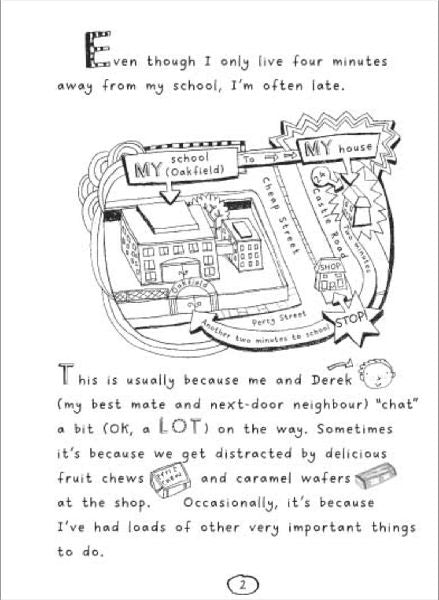 Even though I only live four minutes
away from my school, I'm often late.
MY school
(Oakfield)
To
MY house
24
Cheap Street
Castle Road
Two minutes
SHOP
Oakfield
Percy Street
STOP!
Another two minutes to school
This is usually because me and Derek
(my best mate and next-door neighbour) "chat"
a bit (OK, a LOT) on the way. Sometimes
it's because we get distracted by delicious
fruit chews
FRUIT
CHEW
and caramel wafers
at the shop. Occasionally, it's because
I've had loads of other very important things
to do.
2